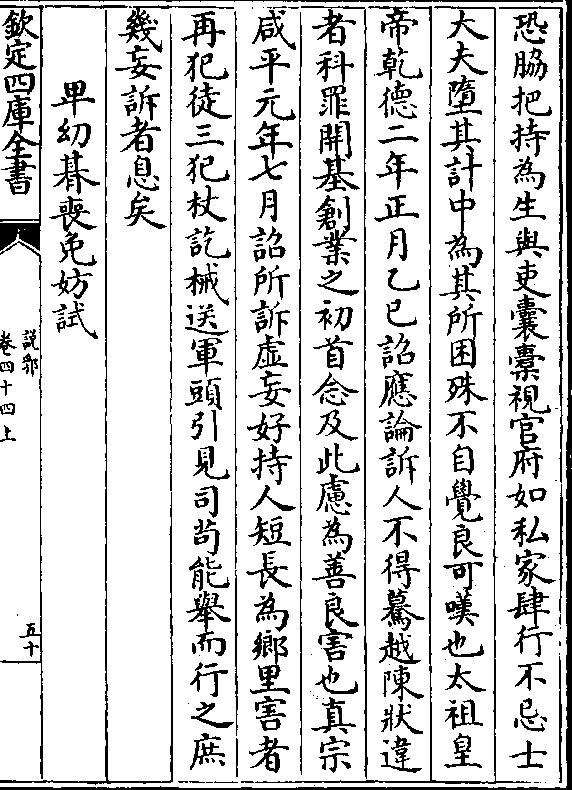 恐脇把持為生與吏囊橐視官府如私家肆行不忌士
大夫墮其計中為其所困殊不自覺良可嘆也太祖皇
帝乾德二年正月乙巳詔應論訴人不得驀越陳狀違
者科罪開基創業之初首念及此慮為善良害也真宗
咸平元年七月詔所訴虛妄好持人短長為鄉里害者
再犯徒三犯杖訖械送軍頭引見司茍能舉而行之庶
幾妄訴者息矣
卑幼朞喪免妨試
欽定四庫全書
說郛
卷四十四上
五十